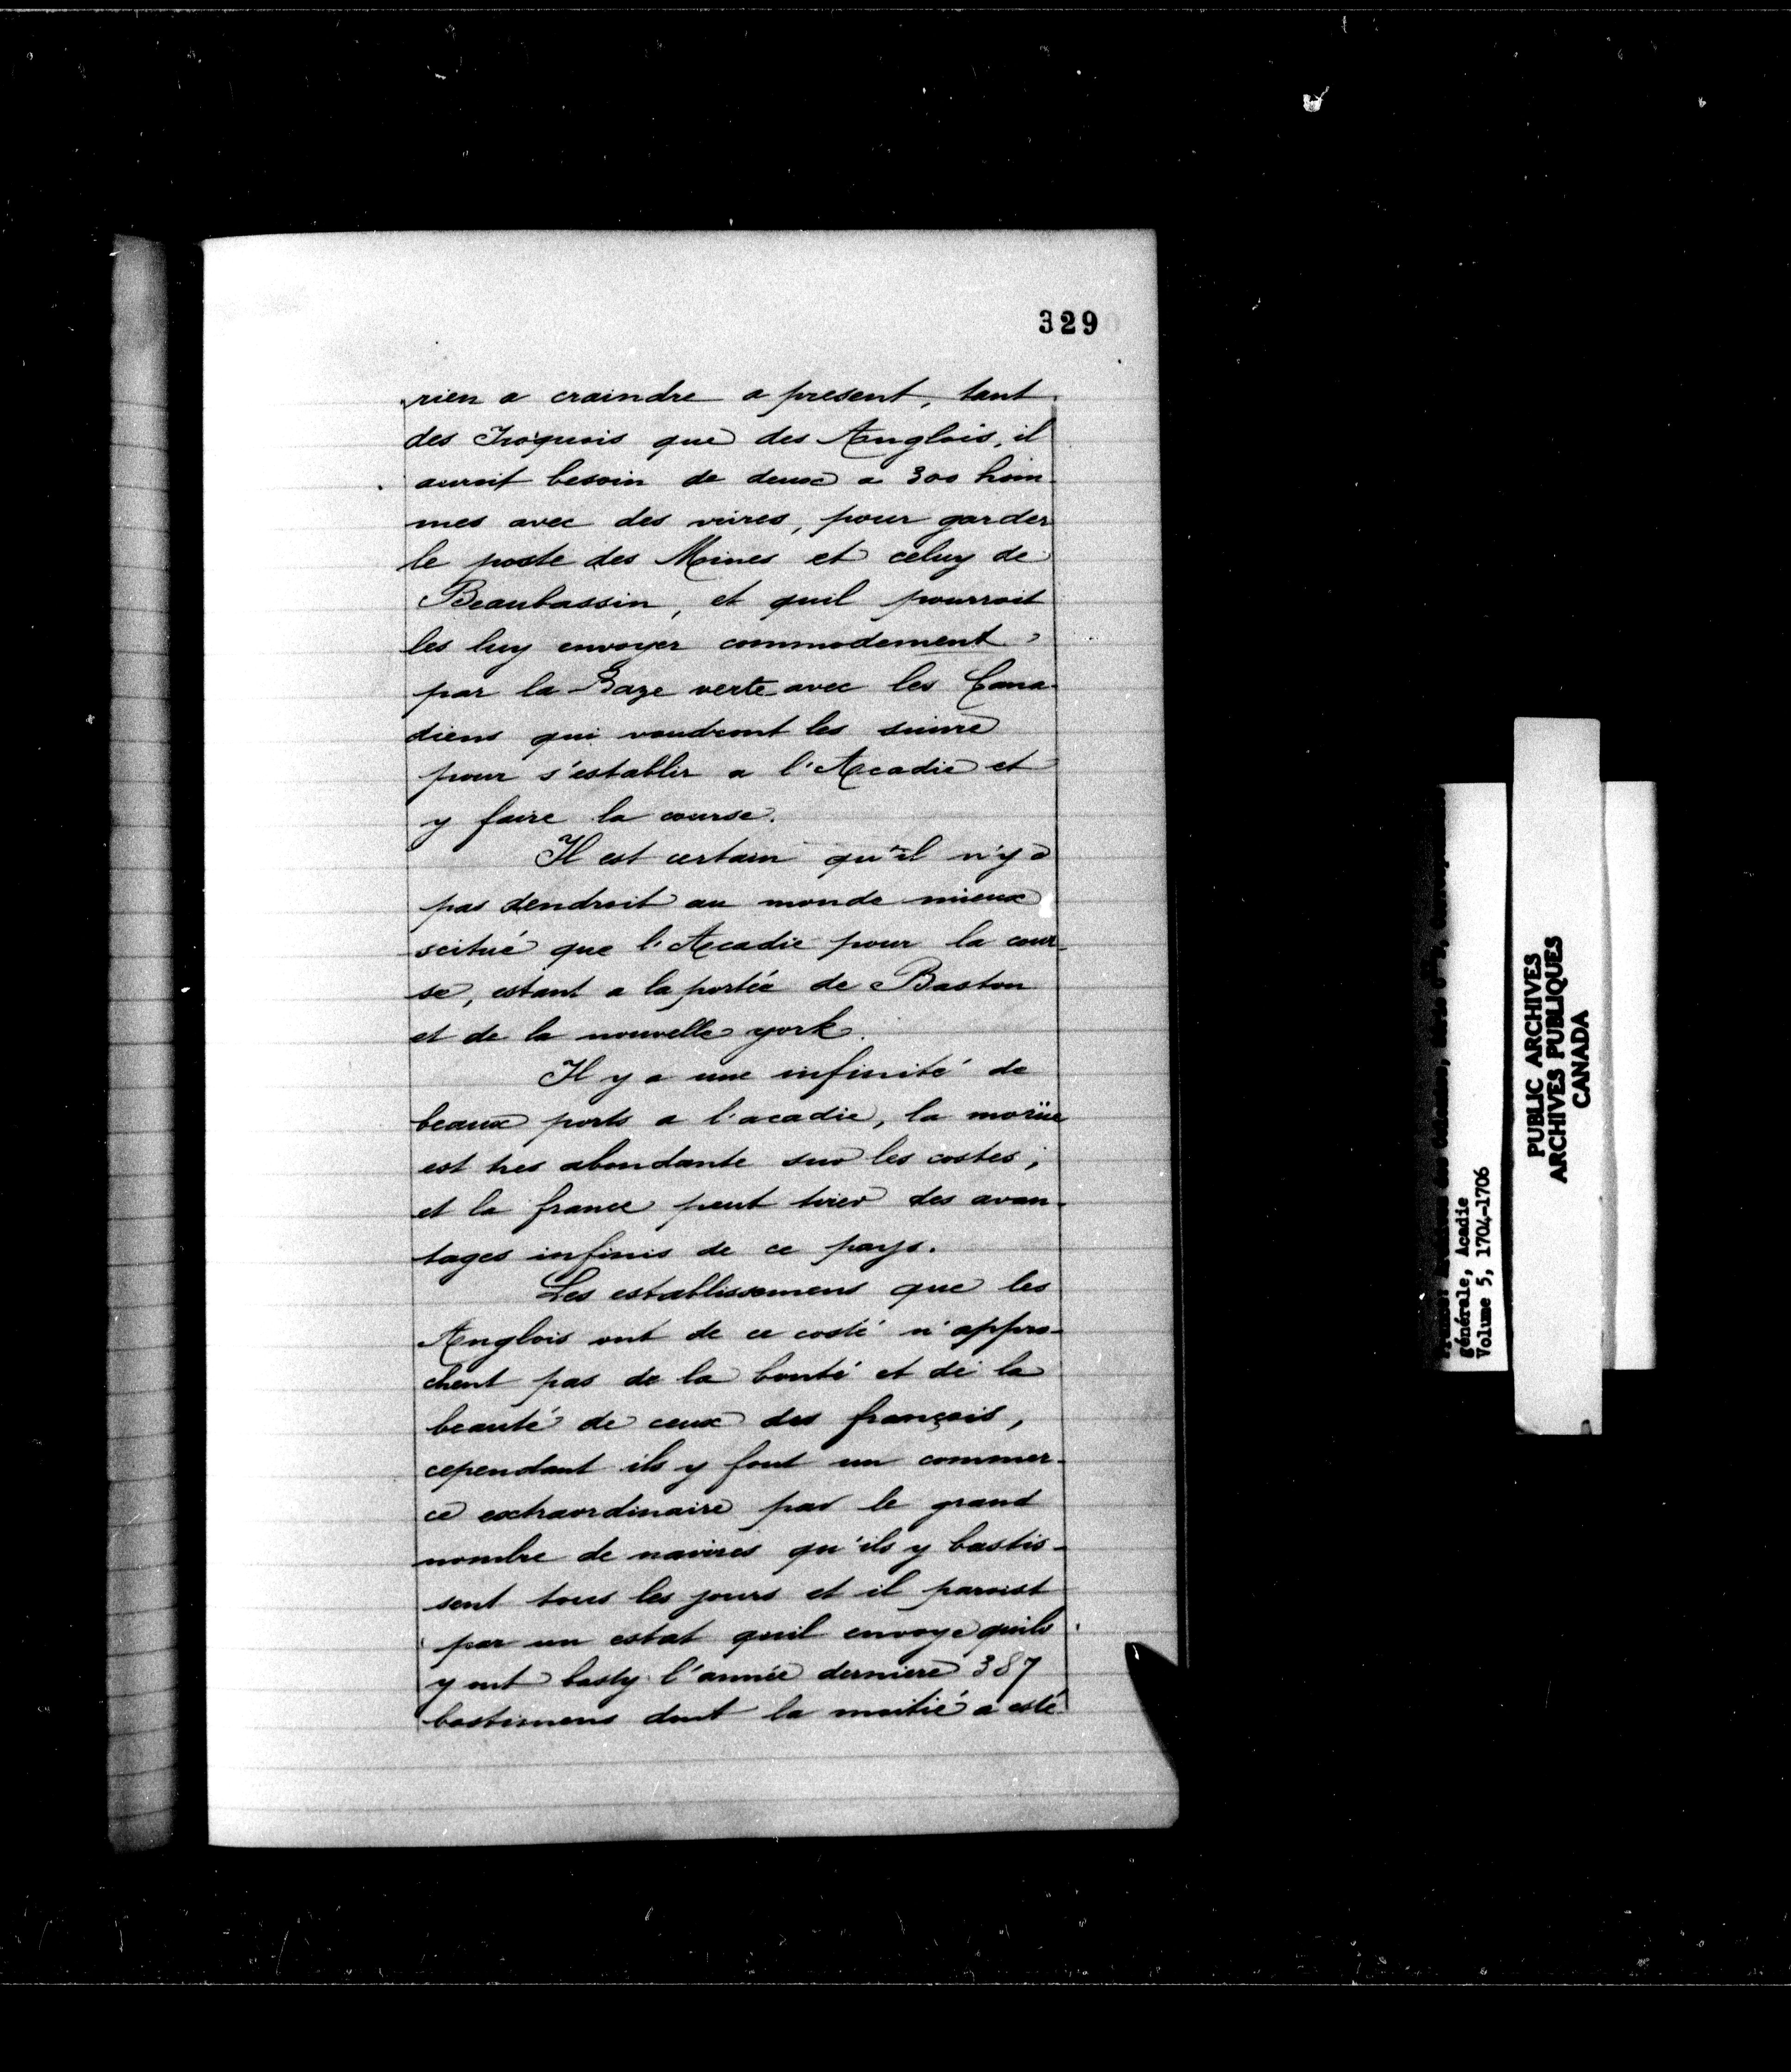 329
rien a craindre a present, tant
des Iroquois que des Anglois, il
auroit besoin de deux a 300 hom-
mes avec des vivres, pour garder
le poste des Mines et celuy de
Beaubassin, et quil pourroit
les luy envoyer commodement
par la Baye verte avec les Cana-
diens qui voudront les suivre
pour s'establir a l'Acadie et
y faire la course.
Il est certain qu'il n'y a
pas dendroit au monde mieux
scitué que l'Acadie pour la cour-
se, estant a la portée de Baston
et de la nouvelle york.
Il y a une infinité de
beaux ports a l'acadie, la morüe
est tres abondante sur les costes;
et la france peut tirer des avan-
tages infinis de ce pays.
Les establissemens que les
Anglois ont de ce costé n'appro-
chent pas de la bonté et de la
beauté de ceux des françois,
cependant ils y font un commer-
ce extraordinaire par le grand
nombre de navires qu'ils y bastis-
sent tous les jours et il paroist
par un estat quil envoye quils
y ont basty l'année derniere 387
bastimens dont la moitié a esté
générale, Acadie
Volume 5, 1704-1706
PUBLIC ARCHIVES
ARCHIVES PUBLIQUES
CANADA